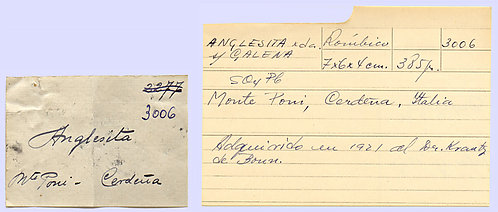 2277
3006
Anglesita
Mte Poni - Cerdeña
ANGLESITA xda. Rómbico 3006
y GALENA 7x6x4 cm. 385p.
SO4Pb
Monte Poni, Cerdeña, Italia
Adquirido en 1921 al Dr. Krantz
de Bonn.